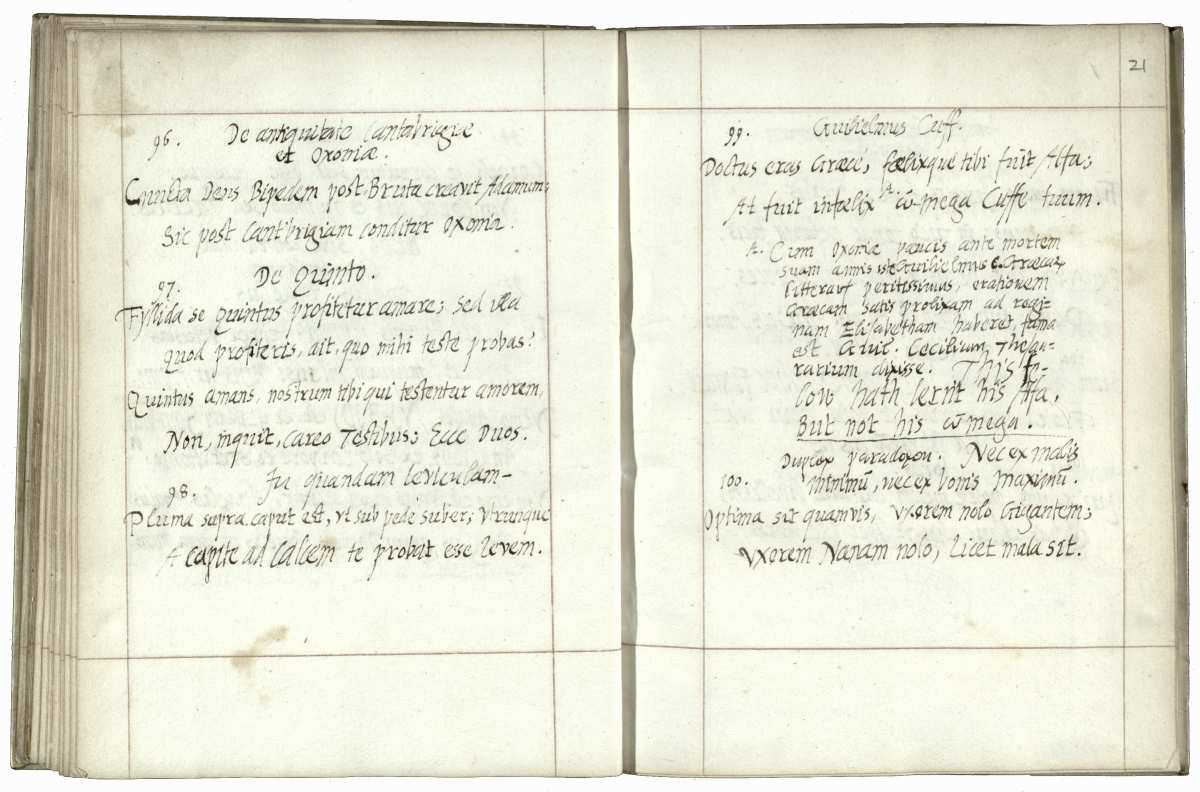 96. De antiquitate Cantabrigiæ
et Oxoniæ.
Cuncta Deus Bipedem post Bruta creavit Adamum;
Sic post Cantbrigiam conditur Oxonia.
97. De Quinto.
Fyllida se Quintus profitetur amare; sed illa
Quod profiteris, ait, quo mihi teste probas?
Quintus amans, nostrum tibi qui testentur amorem,
Non, inquit, careo Testibus; Ecce Duos.
98. In quandam levculam-
Pluma supra caput est, vt sub pede suber; Vtrunque
A capite ad calcem te probat esse levem.
21
99. Guilielmus Cuff.
Doctus eras Græcè, fœlixque tibi fuit Alfa;
At fuit infœlix ω-mega Cuffe tuum.
A. Cum Oxoniæ paucis ante mortem
suam annis iste Guilielmus C. Græcar
litterarū peritissimus, orationem
Græcam satis prolixam ad regi-
nam Elisabetham haberet, fama
est Guil. Cecilium, Thesau-
rarium dixisse. This fe-
low hath lernt his Alfa,
But not his ω mega.
Duplex paradoxon. Nec ex malis
100. minimū, nec ex bonis maximū.
Optima sit quamvis, Vxorem nolo Gigantem;
Vxorem Nanam nolo, licet mala sit.